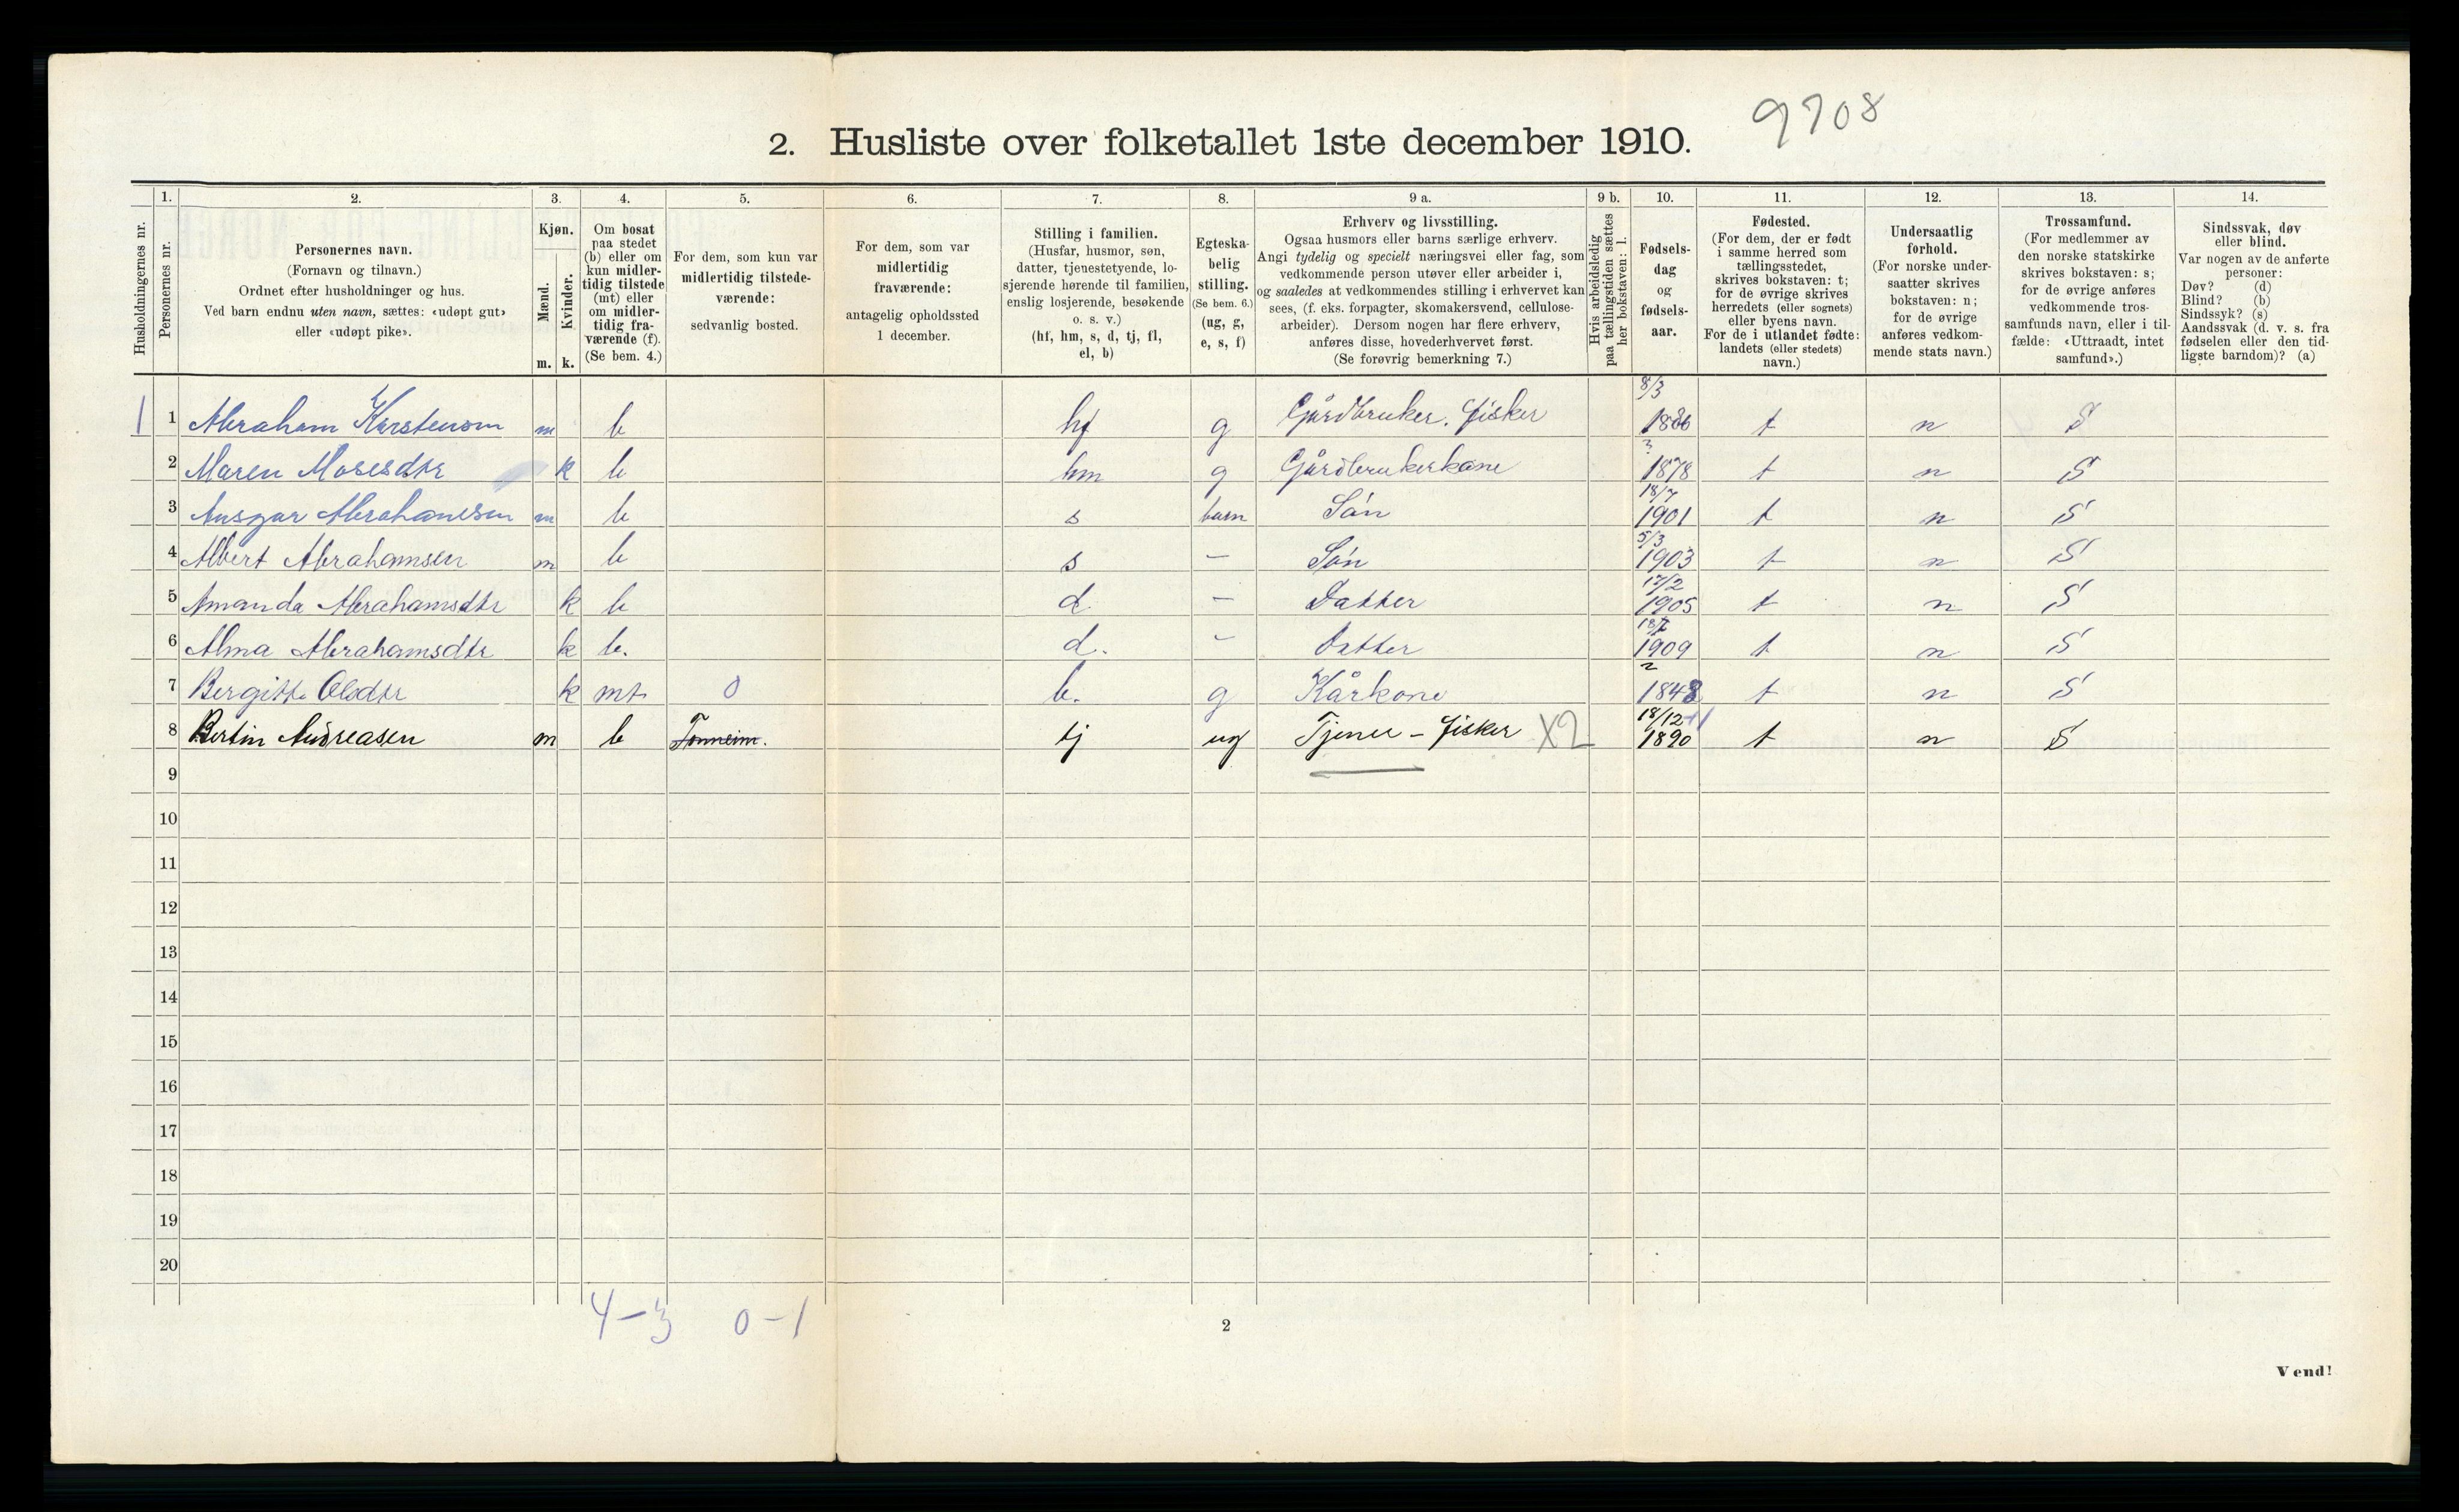 9708
2. Husliste over folketallet 1ste december 1910.
Husholdningernes nr.
1.
Personernes nr.
2.
Personernes navn.
(Fornavn og tilnavn.)
Ordnet efter husholdninger og hus.
Ved barn endnu uten navn, sættes: «udøpt gut»
eller «udøpt pike».
3.
Kjøn.
Mænd.
m.
Kvinder.
k.
4.
Om bosat
paa stedet
(b) eller om
kun midler-
tidig tilstede
(mt) eller
om midler-
tidig fra-
værende (f).
(Se bem. 4.)
5.
For dem, som kun var
midlertidig tilstede-
værende:
sedvanlig bosted.
6.
For dem, som var
midlertidig
fraværende:
antagelig opholdssted
1 december.
7.
Stilling i familien.
(Husfar, husmor, søn,
datter, tjenestetyende, lo-
sjerende hørende til familien,
enslig losjerende, besøkende
o. s. v.)
(hf, hm, s, d, tj, fl,
el, b)
8.
Egteska-
belig
stilling.
(Se bem. 6.)
(ug, g,
e, s, f)
9 a.
Erhverv og livsstilling.
Ogsaa husmors eller barns særlige erhverv.
Angi tydelig og specielt næringsvei eller fag, som
vedkommende person utøver eller arbeider i,
og saaledes at vedkommendes stilling i erhvervet kan
sees, (f. eks. forpagter, skomakersvend, cellulose-
arbeider). Dersom nogen har flere erhverv,
anføres disse, hovederhvervet først.
(Se forøvrig bemerkning 7.)
9 b.
Hvis arbeidsledig
paa tællingstiden sættes
her bokstaven: l.
10.
Fødsels-
dag
og
fødsels-
aar.
11.
Fødested.
(For dem, der er født
i samme herred som
tællingsstedet,
skrives bokstaven: t;
for de øvrige skrives
herredets (eller sognets)
eller byens navn.
For de i utlandet fødte:
landets (eller stedets)
navn.)
12.
Undersaatlig
forhold.
(For norske under-
saatter skrives
bokstaven: n;
for de øvrige
anføres vedkom-
mende stats navn.)
13.
Trossamfund.
(For medlemmer av
den norske statskirke
skrives bokstaven: s;
for de øvrige anføres
vedkommende tros-
samfunds navn, eller i til-
fælde: «Uttraadt, intet
samfund».)
14.
Sindssvak, døv
eller blind.
Var nogen av de anførte
personer:
Døv? (d)
Blind? (b)
Sindssyk? (s)
Aandssvak (d. v. s. fra
fødselen eller den tid-
ligste barndom)? (a)
1 1 Abraham Karstensen m b hf g Gårdbruker. fisker 8/3 t n S
2 Maren Mosesdtr k b hm g Gårdbrukerkone ? 1878 t n S
3 Ansgar Abrahamsen m b s barn Søn 18/7 1901 t n S
4 Albert Abrahamsen m b s – Søn 5/3 1903 t n S
5 Amanda Abrahamsdtr k b d – Datter 17/2 1905 t n S
6 Alma Abrahamsdtr k b. d. – Datter 1909 t n S
7 Bergitte Olsdtr k mt 0 b. g Kårkone 1848 t n S
8 Bertin Andreasen m b tj ug Tjener – fisker X2 18/12 1890 t n S
9
10
11
12
13
14
15
16
17
18
19
20
4–3 0–1
2
Vend!